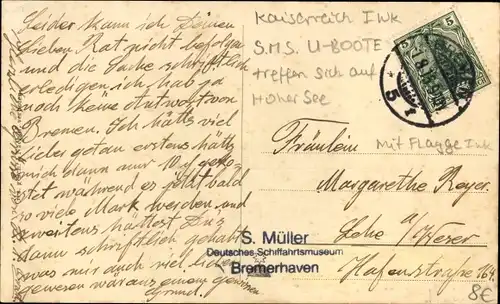 Leider kann ich Deinen
lieben Rat nicht befolgen
und die Sache schriftlich
erledigen, ich hab ja
noch keine Antwort von
Bremen. Ich hätts viel
lieber getan erstens hätts
mich dann nur 10 ₰ geko-
stet während es jetzt bald
so viele Mark werden, und
zweitens hättest Du's
dann schriftlich gehabt
was mir auch viel lieber
gewesen wär aus einem gewissen
Grund.
Kaiserreich Ink
S.M.S. U-BOOTE
treffen sich auf
Hoher See
Mit Flagge Ink
5
5
BREMEN
* 5 r
Fräulein
Margarethe Royer
Lehe a/Weser
Hafenstraße 164
S. Müller
Deutsches Schiffahrtsmuseum
Bremerhaven
8€